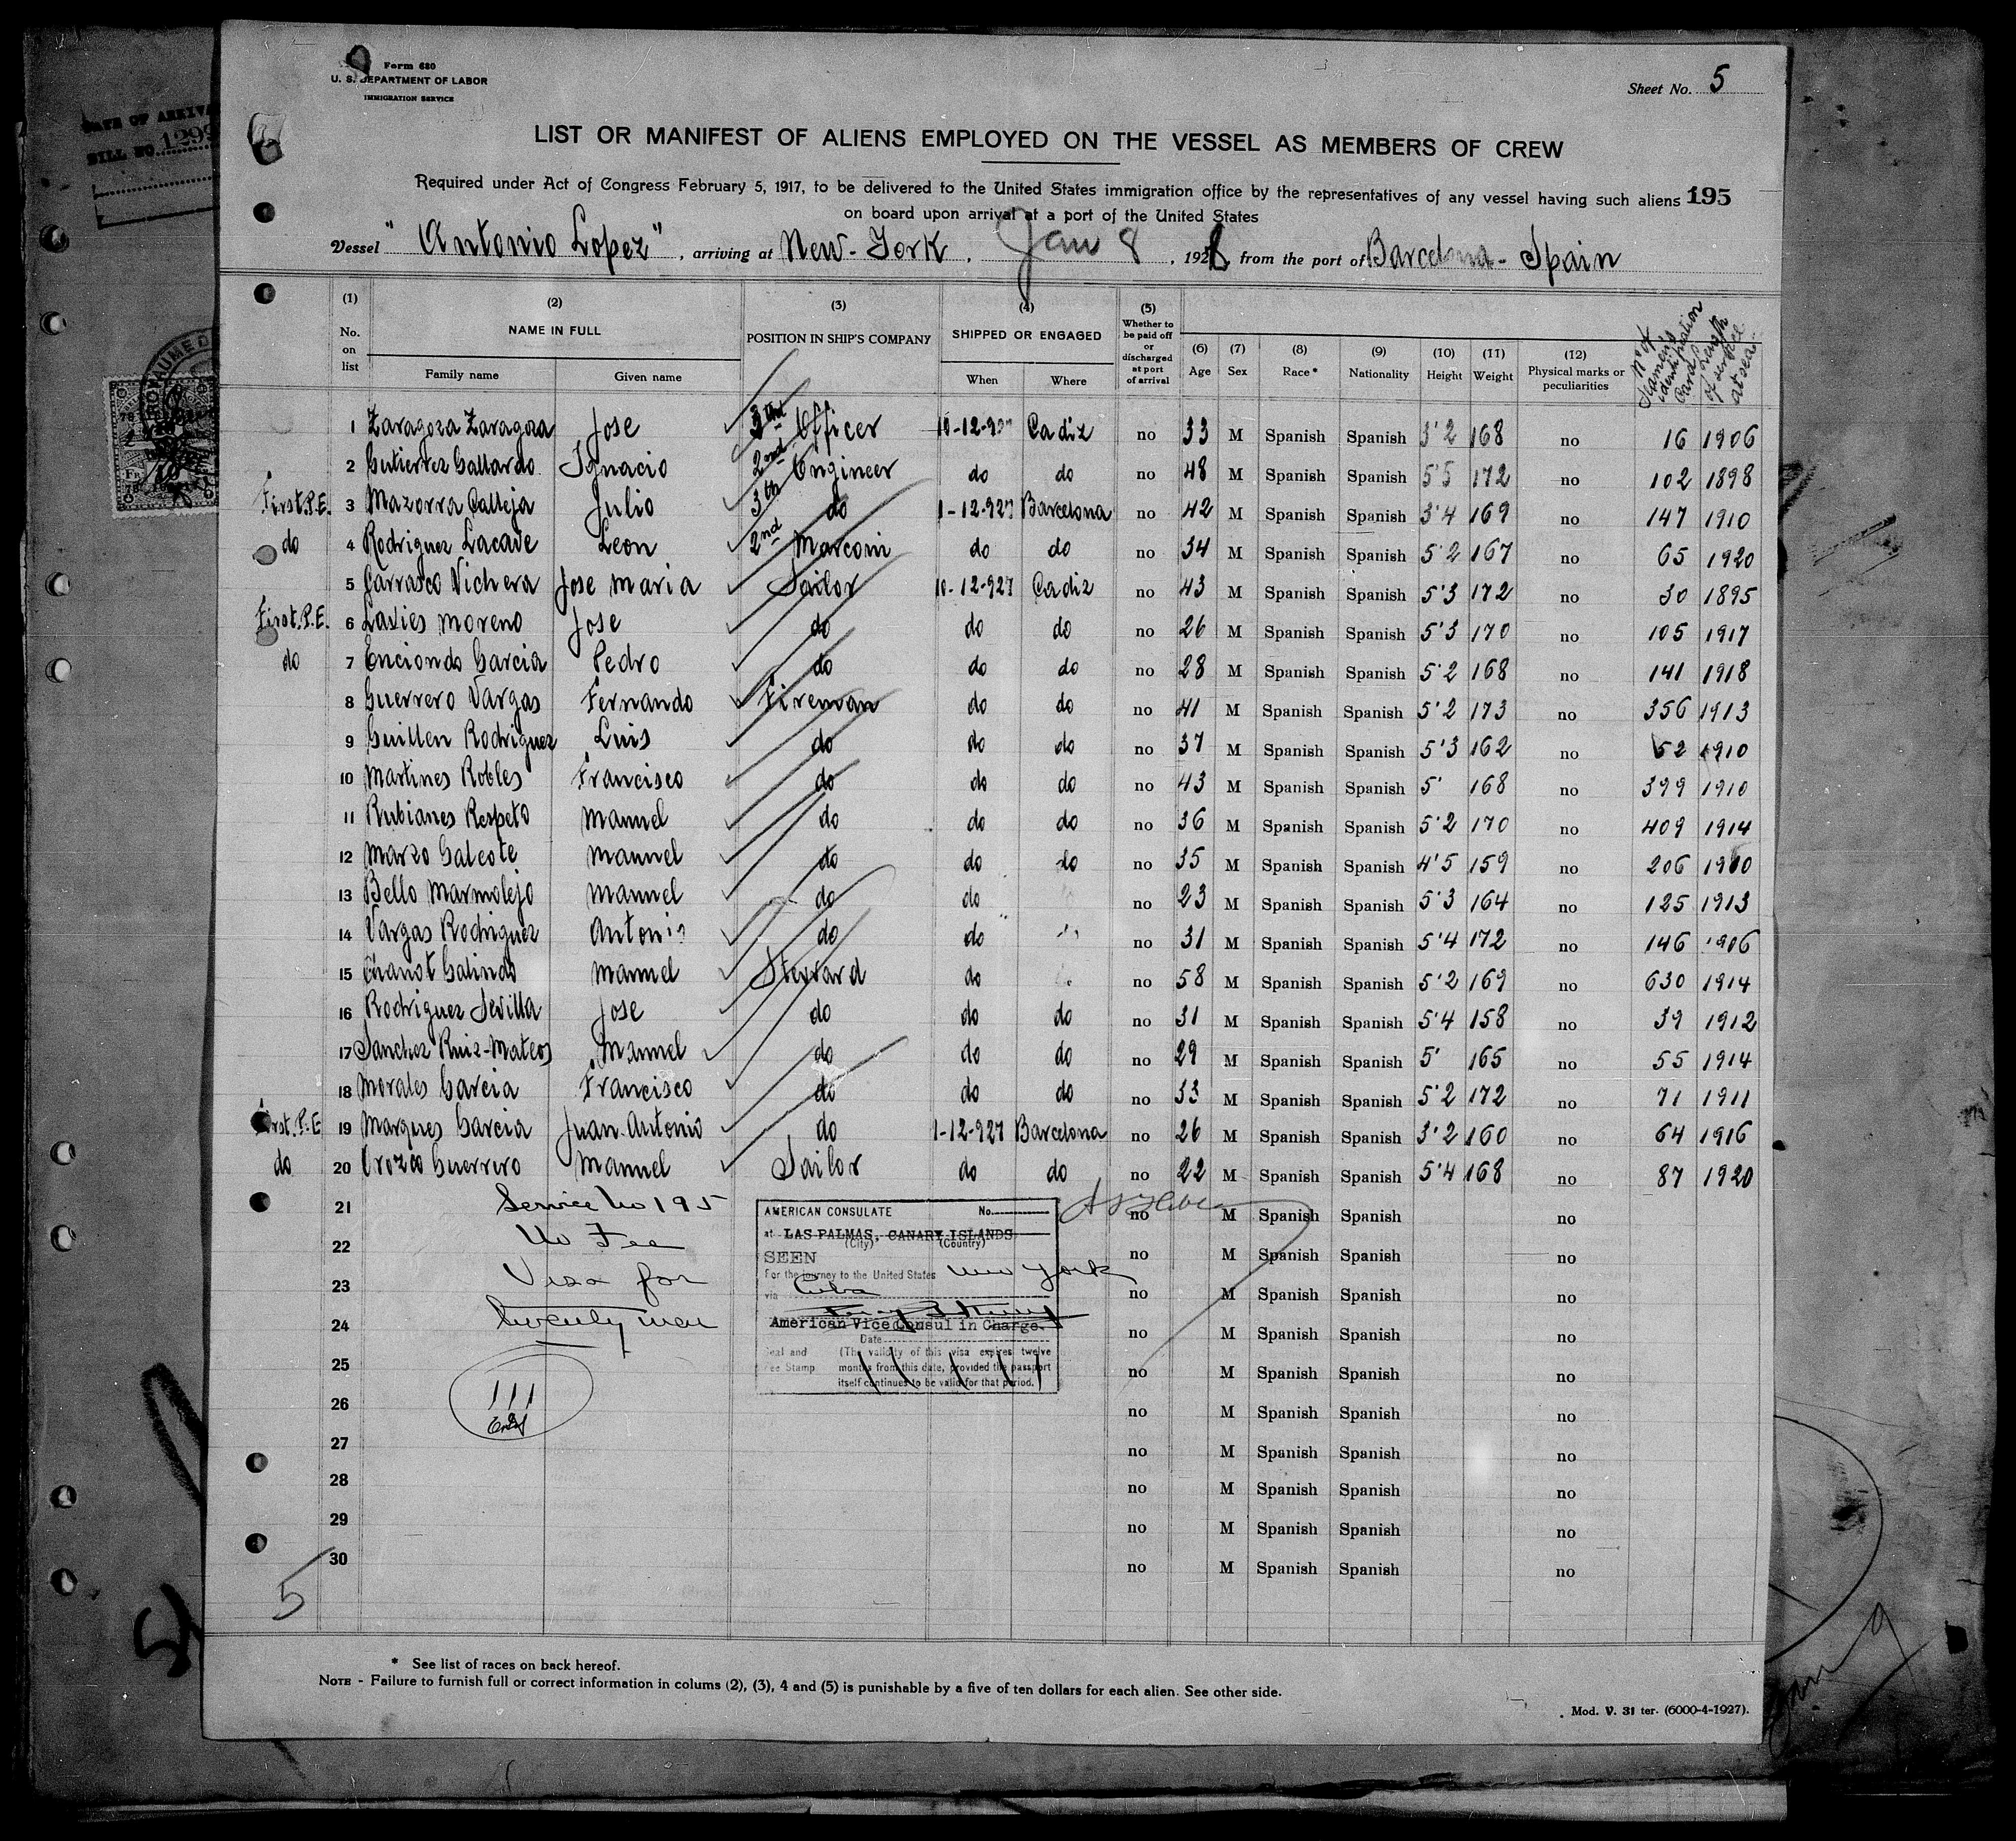 Form 680
U. S. DEPARTMENT OF LABOR
IMMIGRATION SERVICE
Sheet No. 5
DATE OF ARRIVA
BILL NO. 1299
LIST OR MANIFEST OF ALIENS EMPLOYED ON THE VESSEL AS MEMBERS OF CREW
Required under Act of Congress February 5, 1917, to be delivered to the United States immigration office by the representatives of any vessel having such aliens 195
on board upon arrival at a port of the United States
Vessel "Antonio Lopez", arriving at New-York, Jan 8, 1928 from the port of Barcelona - Spain
(1) No. on list (2) NAME IN FULL Family name Given name (3) POSITION IN SHIP'S COMPANY (4) SHIPPED OR ENGAGED When Where (5) Whether to be paid off or discharged at port of arrival (6) Age (7) Sex (8) Race * (9) Nationality (10) Height (11) Weight (12) Physical marks or peculiarities Nº of Seamen's identification Card Length of service at sea
1 Zaragoza Zaragoza Jose Officer 10-12-927 Cadiz no 33 M Spanish Spanish 3'2 168 no 16 1906
2 Gutierrez Gallardo Ignacio 2nd Engineer do do no 48 M Spanish Spanish 5'5 172 no 102 1898
First.P.E. 3 Mazorra Calleja Julio 3th do 1-12-927 Barcelona no 42 M Spanish Spanish 3'4 169 no 147 1910
do 4 Rodriguez Lacave Leon 2nd Marconi do do no 34 M Spanish Spanish 5'2 167 no 65 1920
5 Carrasco Vichera Jose Maria Sailor 10-12-927 Cadiz no 43 M Spanish Spanish 5'3 172 no 30 1895
First.P.E. 6 Lasies Moreno Jose do do do no 26 M Spanish Spanish 5'3 170 no 105 1917
do 7 Enciondo Garcia Pedro do do do no 28 M Spanish Spanish 5'2 168 no 141 1918
8 Guerrero Vargas Fernando Fireman do do no 41 M Spanish Spanish 5'2 173 no 356 1913
9 Guillen Rodriguez Luis do do do no 37 M Spanish Spanish 5'3 162 no 52 1910
10 Martines Robles Francisco do do do no 43 M Spanish Spanish 5' 168 no 399 1910
11 Rubianes Respeto Manuel do do do no 36 M Spanish Spanish 5'2 170 no 409 1914
12 Marzo Galeote Manuel do do do no 35 M Spanish Spanish 4'5 159 no 206 1910
13 Bello Marmolejo Manuel do do no 23 M Spanish Spanish 5'3 164 no 125 1913
14 Vargas Rodriguez Antonio do do no 31 M Spanish Spanish 5'4 172 no 146 1906
15 Galindo Manuel Steward do no 58 M Spanish Spanish 5'2 169 no 630 1914
16 Rodriguez Sevilla Jose do do do no 31 M Spanish Spanish 5'4 158 no 39 1912
17 Sanchez Ruiz-Mateos Manuel do do do no 29 M Spanish Spanish 5' 165 no 55 1914
18 Morales Garcia Francisco do do do no 33 M Spanish Spanish 5'2 172 no 71 1911
First.P.E 19 Marques Garcia Juan Antonio do 1-12-927 Barcelona no 26 M Spanish Spanish 3'2 160 no 64 1916
do 20 Orozco Guerrero Manuel Sailor do do no 22 M Spanish Spanish 5'4 168 no 87 1920
21 Service No 195 no M Spanish Spanish no
22 No Fee no M Spanish Spanish no
23 Visa for no M Spanish Spanish no
24 twenty men no M Spanish Spanish no
25 no M Spanish Spanish no
26 111 no M Spanish Spanish no
27 no M Spanish Spanish no
28 no M Spanish Spanish no
29 no M Spanish Spanish no
30 no M Spanish Spanish no
AMERICAN CONSULATE No.
at LAS PALMAS, CANARY ISLANDS
(City) (Country)
SEEN
For the journey to the United States New York
via Cuba
American Vice Consul in Charge.
Date
Seal and Fee Stamp (The validity of this visa expires twelve
months from this date, provided the passport
itself continues to be valid for that period.)
5
* See list of races on back hereof.
NOTE - Failure to furnish full or correct information in colums (2), (3), 4 and (5) is punishable by a five of ten dollars for each alien. See other side.
Mod. V. 31 ter. (6000-4-1927).